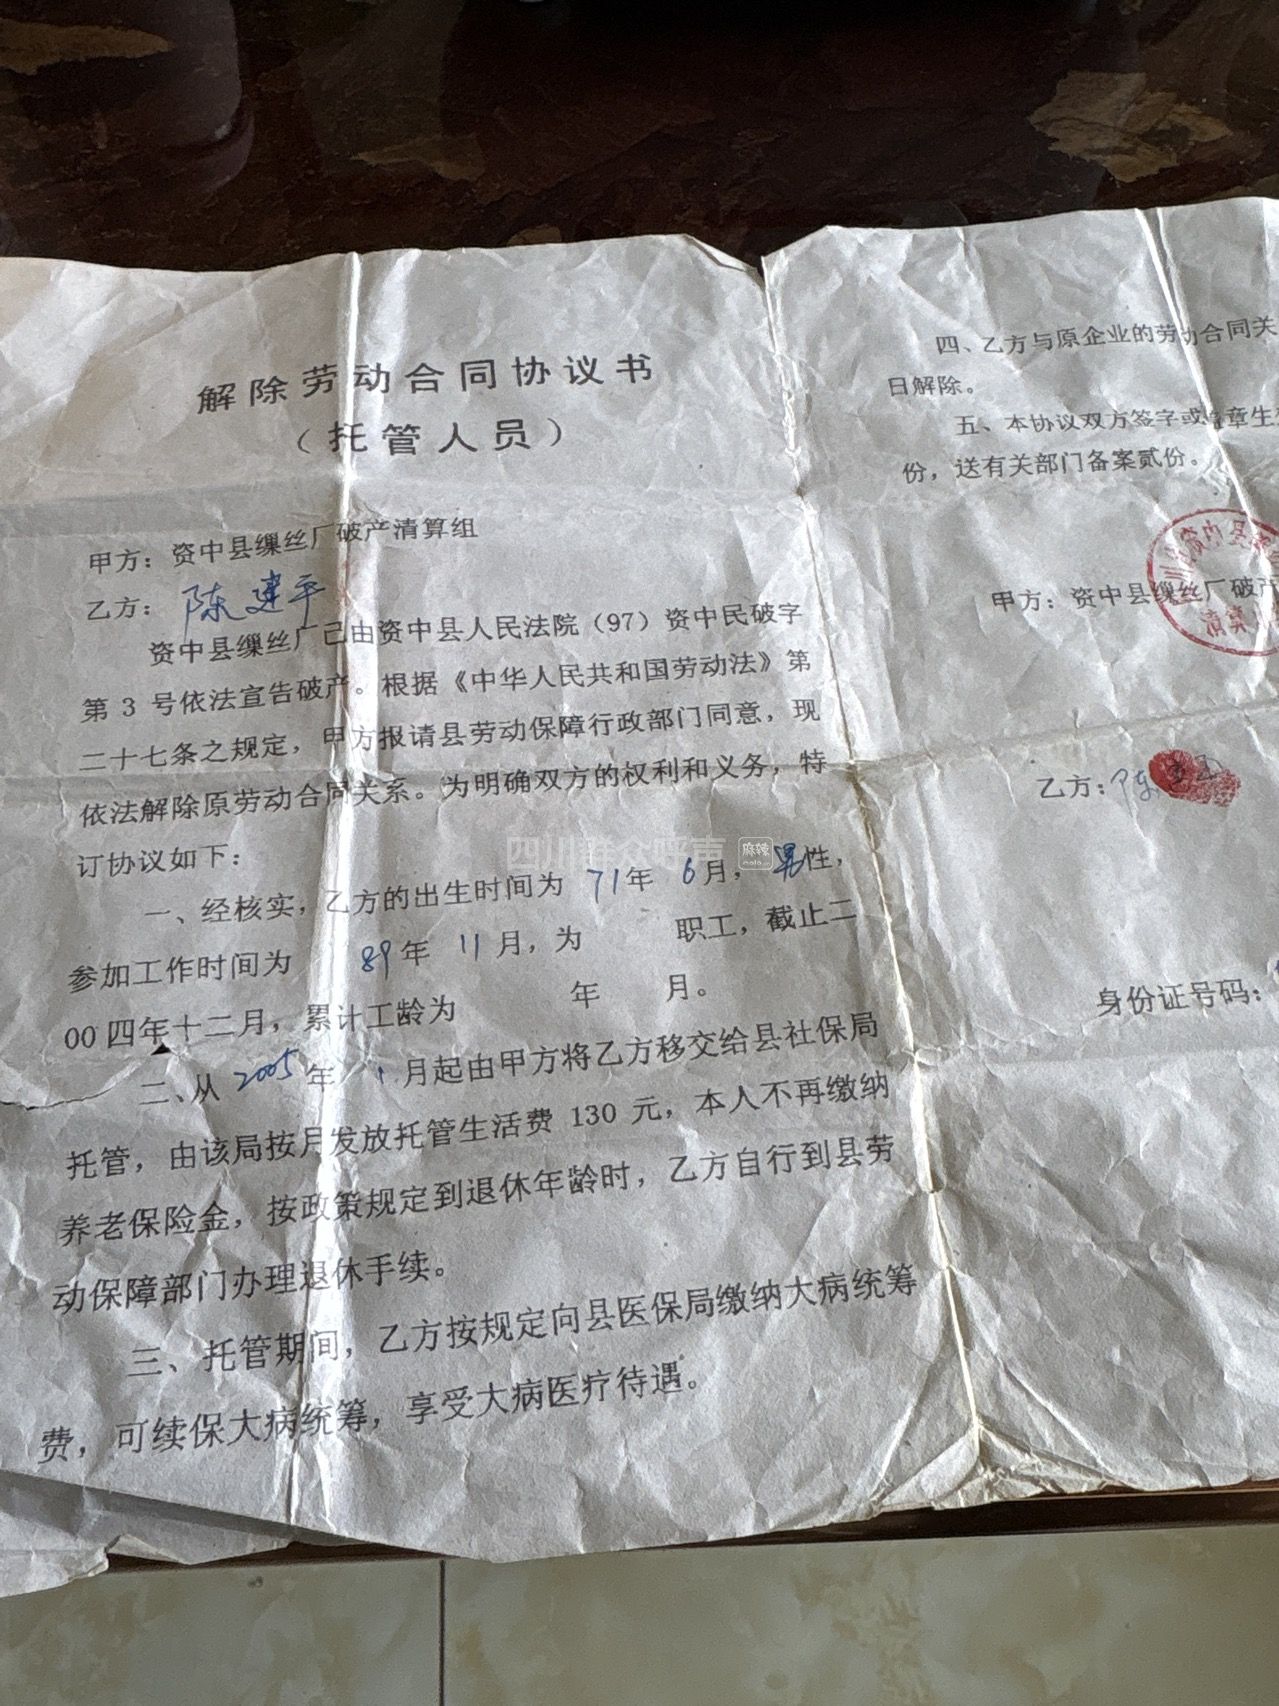 解除劳动合同协议书
（托管人员）
甲方：资中县缫丝厂破产清算组
乙方：陈建平
资中县缫丝厂已由资中县人民法院（97）资中民破字
第 3 号依法宣告破产。根据《中华人民共和国劳动法》第
二十七条之规定，甲方报请县劳动保障行政部门同意，现
依法解除原劳动合同关系。为明确双方的权利和义务，特
订协议如下：
一、经核实，乙方的出生时间为 71年 6月，男性，
参加工作时间为 89年 11月，为 职工，截止二
00四年十二月，累计工龄为 年 月。
二、从 2005年 1月起由甲方将乙方移交给县社保局
托管，由该局按月发放托管生活费 130 元，本人不再缴纳
养老保险金，按政策规定到退休年龄时，乙方自行到县劳
动保障部门办理退休手续。
三、托管期间，乙方按规定向县医保局缴纳大病统筹
费，可续保大病统筹，享受大病医疗待遇。
四、乙方与原企业的劳动合同关
日解除。
五、本协议双方签字或盖章生
份，送有关部门备案贰份。
甲方：资中县缫丝厂破产
乙方：陈
身份证号码：
四川群众呼声 麻辣